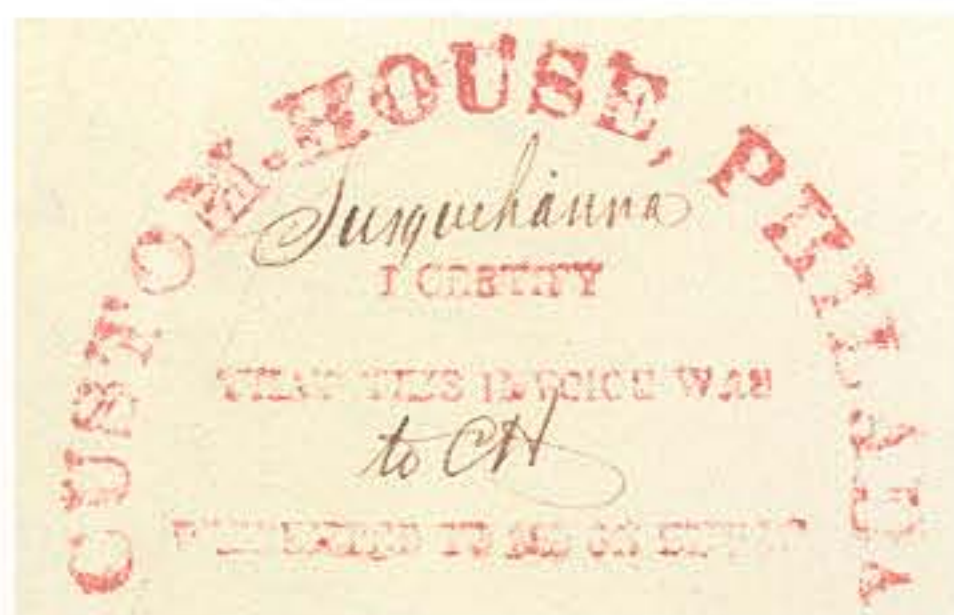 CUSTOM-HOUSE, PHILADA
Susquehanna
I CERTIFY
THAT THIS INVOICE WAS
to CH
PRESENTED TO ME ON ENTRY